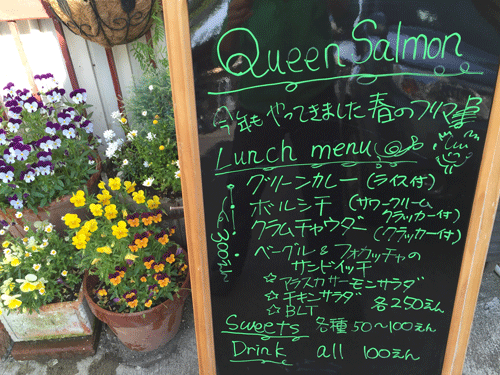 Queen Salmon
今年もやってきました春のフリマ
Lunch menu
グリーンカレー (ライス付)
ボルシチ (サワークリーム
クラッカー付)
クラムチャウダー (クラッカー付)
ベーグル & フォカッチャの
サンドイッチ
☆アラスカサーモンサラダ
☆チキンサラダ 各250えん
☆BLT
Sweets 各種50〜100えん
Drink all 100えん